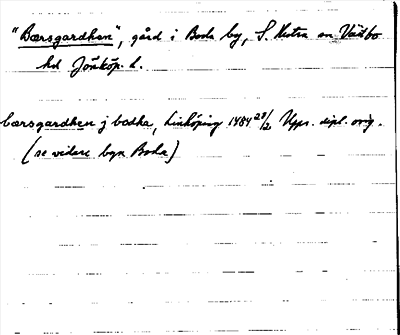 "Bærsgardhen", gård i Boda by, S. Hestra sn Västbo
hd Jönköp. l.
bærsgardhen j bodha, Linköping 1484 28/2 Upps. dipl. orig.
(se vidare byn Boda)